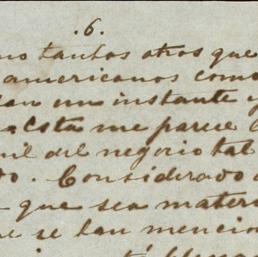 .6.
mo tantos otros que
americanos como
an un instante y
. Esta me parece
mil del negocio tal
to. Considerado
que sea materi
e se han mencio